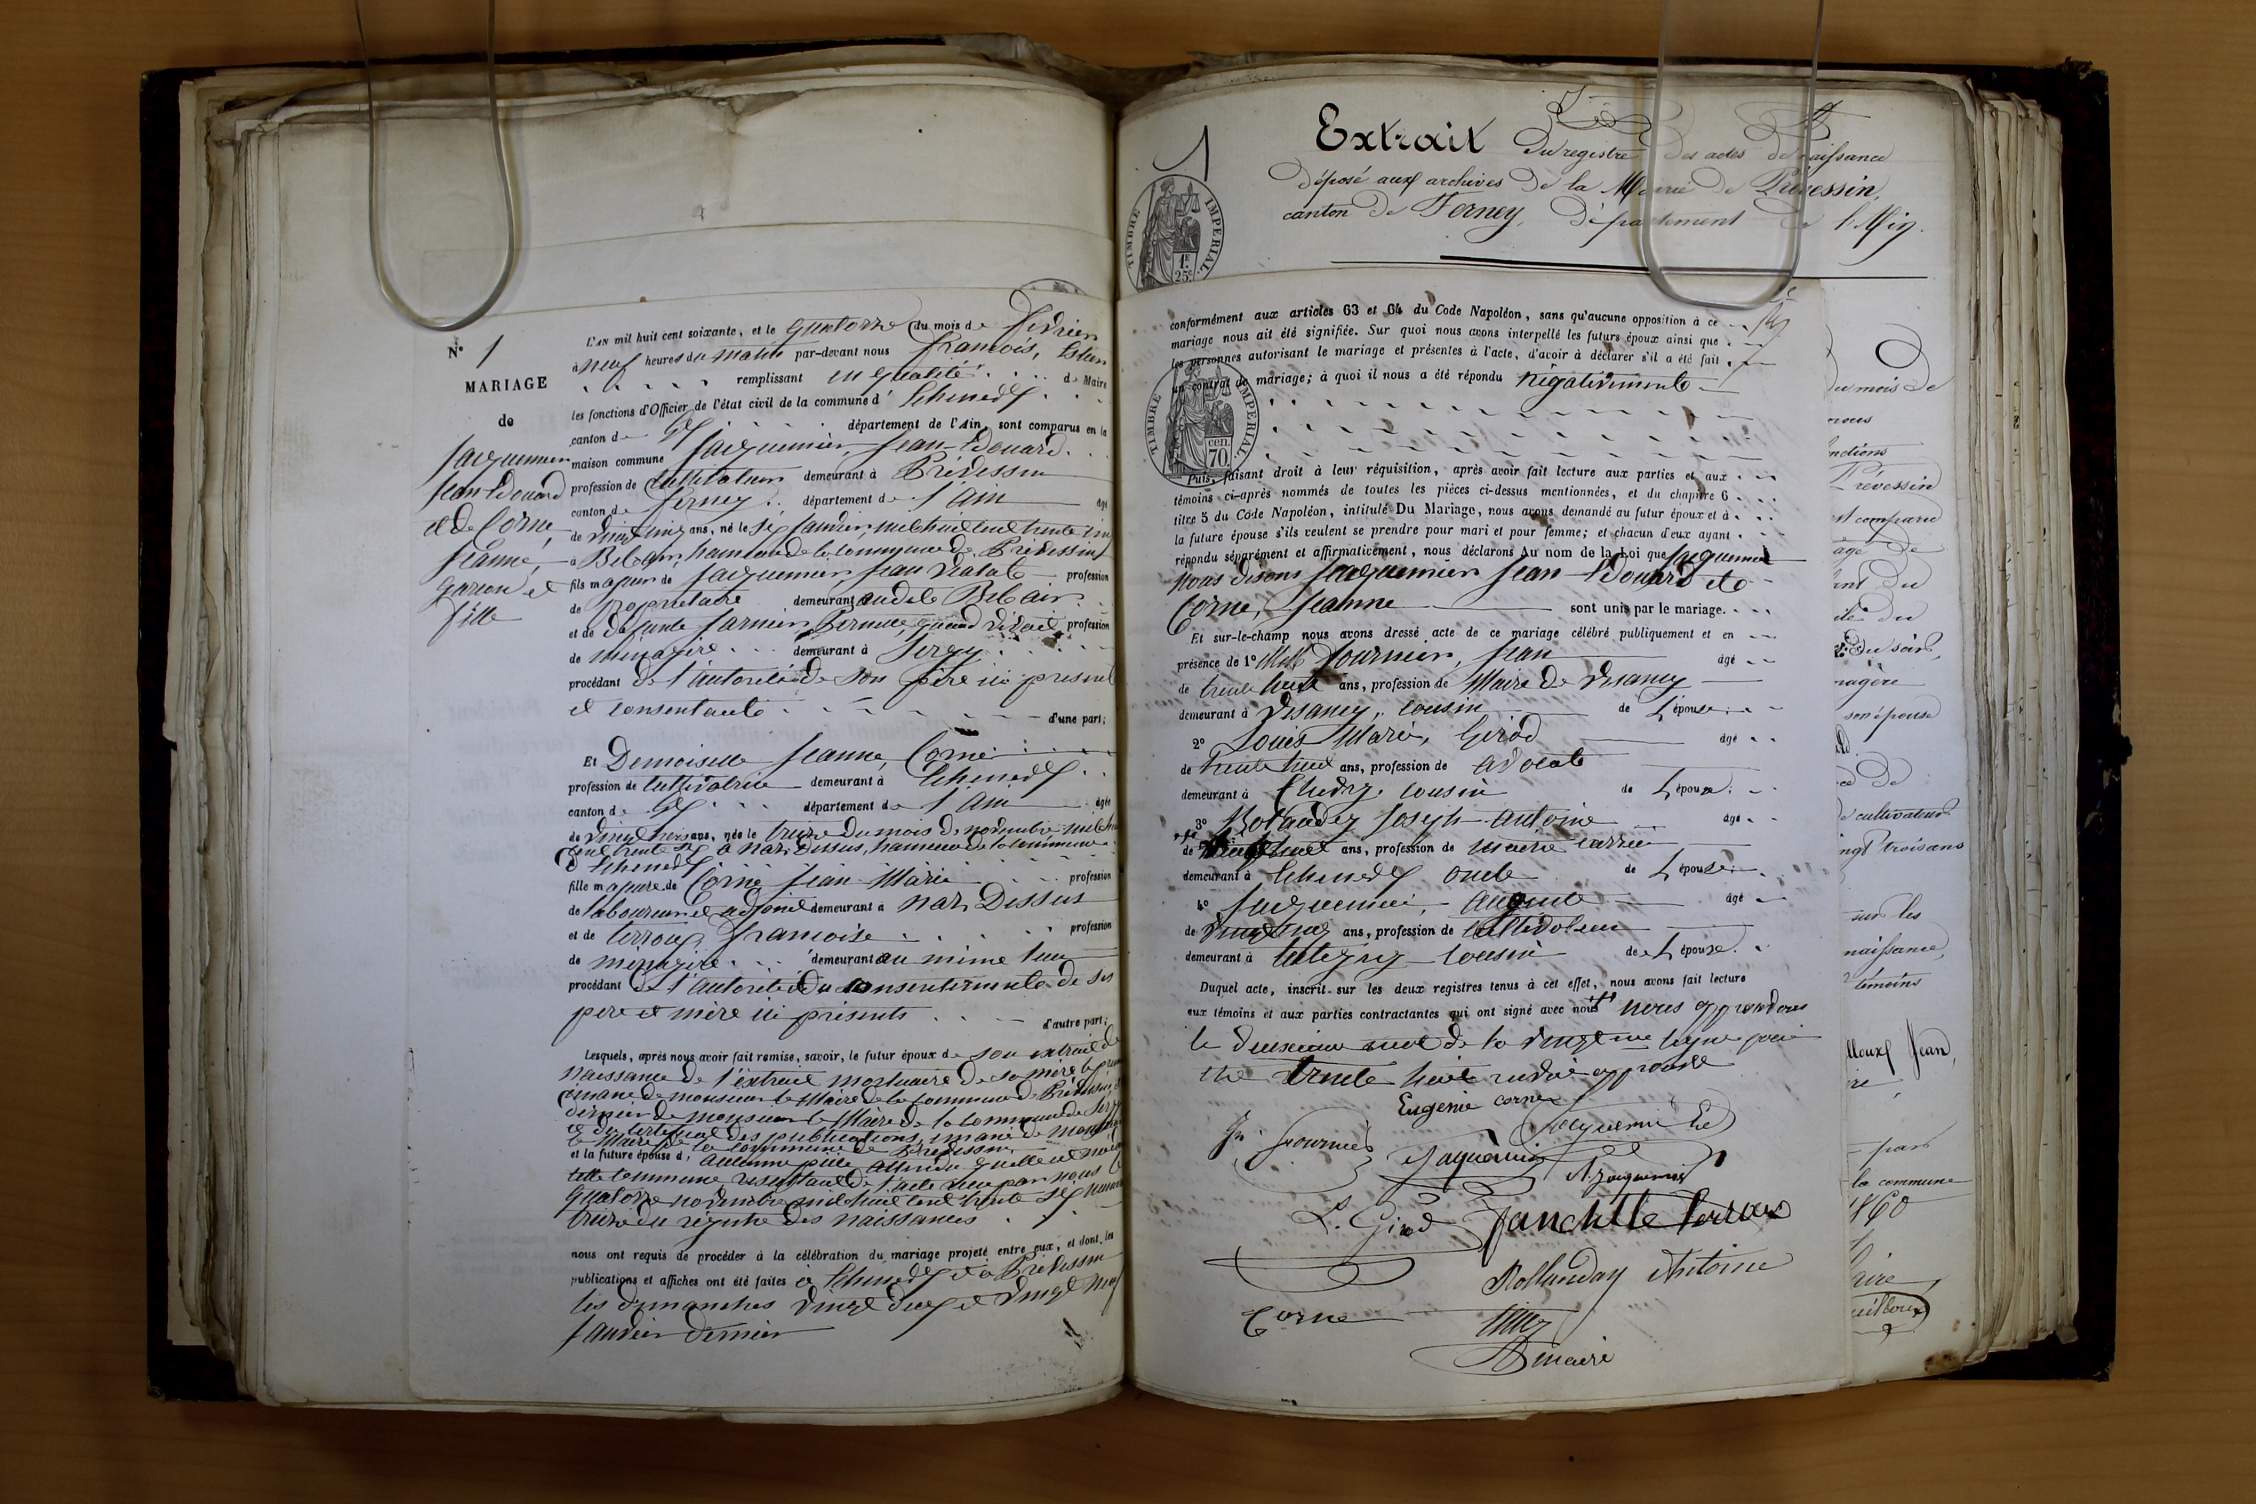 N° 1
MARIAGE
de
Jacquemier
Jean Edouard
et de Corne,
Jeanne,
garçon et
fille
L'AN mil huit cent soixante, et le quatorze du mois de février
à neuf heures du matin par-devant nous françois,
remplissant en qualité de Maire
les fonctions d'Officier de l'état civil de la commune d'Echenevex
canton de Gex département de l'Ain, sont comparus en la
maison commune Jacquemier, Jean Edouard
profession de cultivateur demeurant à Prévessin
canton de Ferney département de l'ain âgé
de vingt neuf ans, né le six janvier mil huit cent trente un
à Bel air, hameau de la commune de Prévessin
fils majeur de Jacquemier, Jean profession
de propriétaire demeurant au dit Bel air
et de défunte Pernette, quand vivait profession
de ménagère demeurant à Sergy
procédant de l'autorité de son père ici présent
et consentant d'une part;
Et Demoiselle Jeanne, Corne
profession de cultivatrice demeurant à Echenevex
canton de Gex département de l'ain âgée
de vingt trois ans, née le treize du mois de novembre mil huit
cent trente six à naz Dessus, hameau de la commune
d'Echenevex
fille majeure de Corne Jean Marie profession
de laboureur et adjoint demeurant à naz Dessus
et de terroux françoise profession
de ménagère demeurant au même lieu
procédant de l'autorité du consentement de ses
père et mère ici présents d'autre part;
Lesquels, après nous avoir fait remise, savoir, le futur époux de son extrait de
naissance de l'extrait mortuaire de sa mère
émané de monsieur le Maire de la commune de Prévessin
dernier de monsieur le Maire de la commune de Sergy
et du certificat des publications, émané de monsieur
le Maire de la commune de Prévessin
et la future épouse d'aucune pièce attendu qu'elle est née
cette commune résultant de l'acte reçu par nous le
quatorze novembre mil huit cent trente six numéro
treize du registre des naissances
nous ont requis de procéder à la célébration du mariage projeté entre eux, et dont les
publications et affiches ont été faites à Echenevex et à Prévessin
les dimanches vingt deux et vingt neuf
janvier dernier
1
Extrait du registre des actes de naissance
déposé aux archives de la Mairie de Prévessin,
canton de Ferney, département de l'Ain.
TIMBRE IMPERIAL.
1f. 25c.
conformément aux articles 63 et 64 du Code Napoléon, sans qu'aucune opposition à ce
mariage nous ait été signifiée. Sur quoi nous avons interpellé les futurs époux ainsi que
les personnes autorisant le mariage et présentes à l'acte, d'avoir à déclarer s'il a été fait
un contrat de mariage; à quoi il nous a été répondu négativement
TIMBRE IMPERIAL.
cen. 70
Puis, faisant droit à leur réquisition, après avoir fait lecture aux parties et aux
témoins ci-après nommés de toutes les pièces ci-dessus mentionnées, et du chapitre 6
titre 5 du Code Napoléon, intitulé Du Mariage, nous avons demandé au futur époux et à
la future épouse s'ils veulent se prendre pour mari et pour femme; et chacun d'eux ayant
répondu séparément et affirmativement, nous déclarons Au nom de la Loi que Jacquemier
nous disons Jacquemier Jean Edouard et
Corne, Jeanne sont unis par le mariage.
Et sur-le-champ nous avons dressé acte de ce mariage célébré publiquement et en
présence de 1° Fournier, Jean âgé
de trente huit ans, profession de Maire de Vesancy
demeurant à Vesancy, cousin de L'épouse
2° Louis Marie, Girod âgé
de trente huit ans, profession de avocat
demeurant à Chevry cousin de L'épouse
3° Rolandez Joseph antoine âgé
de ans, profession de
demeurant à Echenevex oncle de L'épouse
4° Jacquemier, auguste âgé
de vingt cinq ans, profession de cultivateur
demeurant à cousin de L'épouse
Duquel acte, inscrit sur les deux registres tenus à cet effet, nous avons fait lecture
aux témoins et aux parties contractantes qui ont signé avec nous nous approuvons
le deuxième mot de la vingt me ligne
trente huit approuvé
Eugenie corne
Jn. fournier
Jacquemier
Jaquemier
A. Jacquemier
L. Girod
fanchette terroux
Rollanday Antoine
Corne
Maire
du mois de
nous
Prévessin
comparu
âgé de
du
du
du soir,
son épouse
de
cultivateur
vingt trois ans
sur les
naissance,
témoins
Jean,
par
la commune
1860